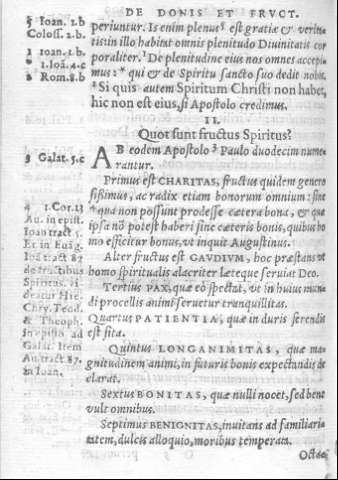 DE DONIS ET FRVCT.
periuntur. Is enim plenus est gratiæ & veri-
tatis in illo habitat omnis plenitudo Diuinitatis cor
poraliter. De plenitudine eius nos omnes accepi-
mus: qui & de Spiritu sancto suo dedit nobis.
Si quis autem Spiritum Christi non habet,
hic non est eius, si Apostolo credimus.
II.
Quot sunt fructus Spiritus?
AB eodem Apostolo Paulo duodecim nume-
rantur.
Primus est CHARITAS, fructus quidem genero
sissimus, ac radix etiam bonorum omnium: sine
qua non possunt prodesse cætera bona, & quæ
ipsa nō potest haberi sine cæteris bonis, quibus ho
mo efficitur bonus, vt inquit Augustinus.
Alter fructus est GAVDIVM, hoc præstans vt
homo spiritualis alacriter læteque seruiat Deo.
Tertius PAX, quæ eò spectat, vt in huius mun-
di procellis animi seruetur tranquillitas.
Quartus PATIENTIA, quæ in duris ferendis
est sita.
Quintus LONGANIMITAS, quæ ma-
gnitudinem animi, in futuris bonis expectandis de
clarat.
Sextus BONITAS, quæ nulli nocet, sed bene
vult omnibus.
Septimus BENIGNITAS, inuitans ad familiari-
tatem, dulcis alloquio, moribus temperata.
Octa-
Ioan. 1.b
Coloss. 2.b.
1 Ioan. 1.b
1. Ioā. 4.c
Rom. 8.b
3 Galat. 5.c
4 1. Cor. 13
Au. in epist.
Ioan tract 5.
Et in Euāg.
Ioā tract 87
de fructibus
Spiritus. vi-
deatur Hie.
Chry. Teod.
& Theoph.
in epist. ad
Galat. Item
Au. tract 87.
in Ioan.